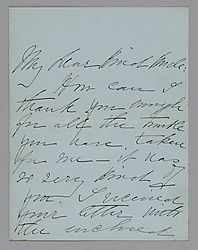 My dear Miss Wilde:
How can I
thank you enough
for all the trouble
you have taken
for me – it was
so very kind of
you. I received
your letter with
the enclosed